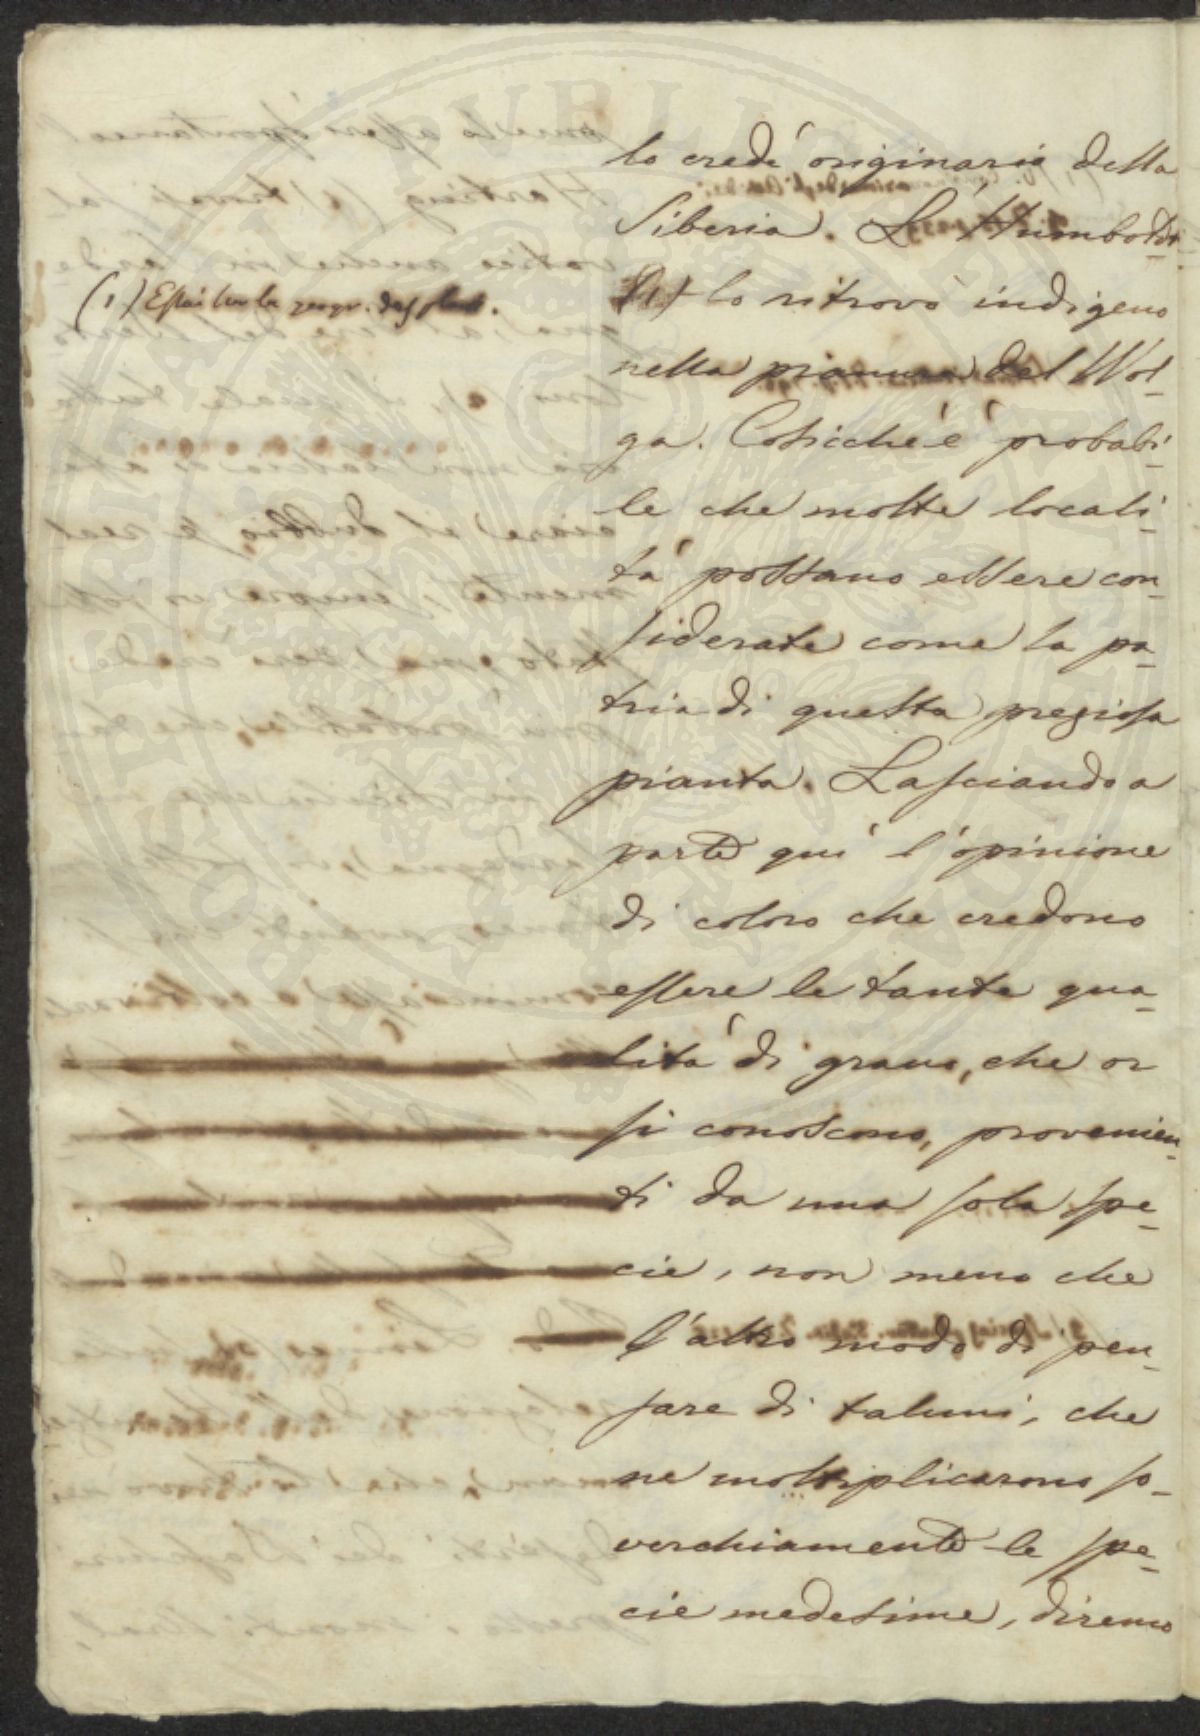 lo credé originario della
Siberia. L'Humboldt
(1) lo ritrovò indigeno
nella pianura del Wol-
ga. Cosicché è probabi-
le che molte locali-
tà possano essere con-
siderate come la pa-
tria di questa preziosa
pianta. Lasciando a
parte quì l'opinione
di coloro che credono
essere le tante qua-
lità di grano, che or
si conoscono, provenien-
ti da una sola spe-
cie, non meno che
l'altro modo di pen-
sare di taluni, che
ne moltiplicarono so-
verchiamente le spe-
cie medesime, diremo
(1) Essai sur la geogr. des plant.